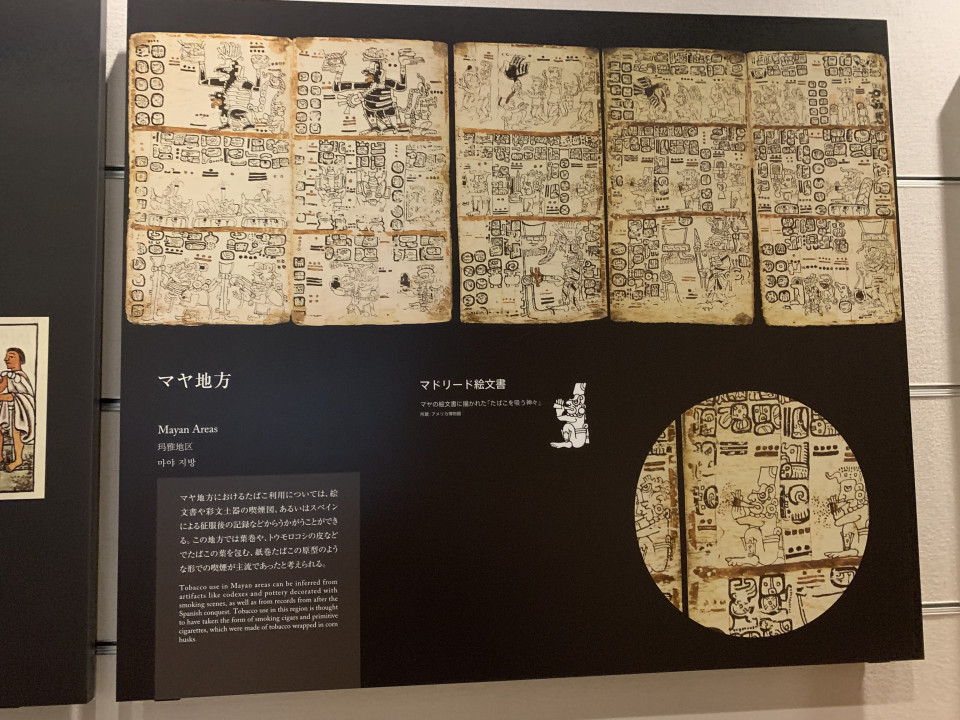 マヤ地方
Mayan Areas
玛雅地区
마야 지방
マヤ地方におけるたばこ利用については、絵
文書や彩文土器の喫煙図、あるいはスペイン
による征服後の記録などからうかがうことができ
る。この地方では葉巻や、トウモロコシの皮など
でたばこの葉を包む、紙巻たばこの原型のよう
な形での喫煙が主流であったと考えられる。
Tobacco use in Mayan areas can be inferred from
artifacts like codexes and pottery decorated with
smoking scenes, as well as from records from after the
Spanish conquest. Tobacco use in this region is thought
to have taken the form of smoking cigars and primitive
cigarettes, which were made of tobacco wrapped in corn
husks.
マドリード絵文書
マヤの絵文書に描かれた「たばこを吸う神々」
所蔵:アメリカ博物館